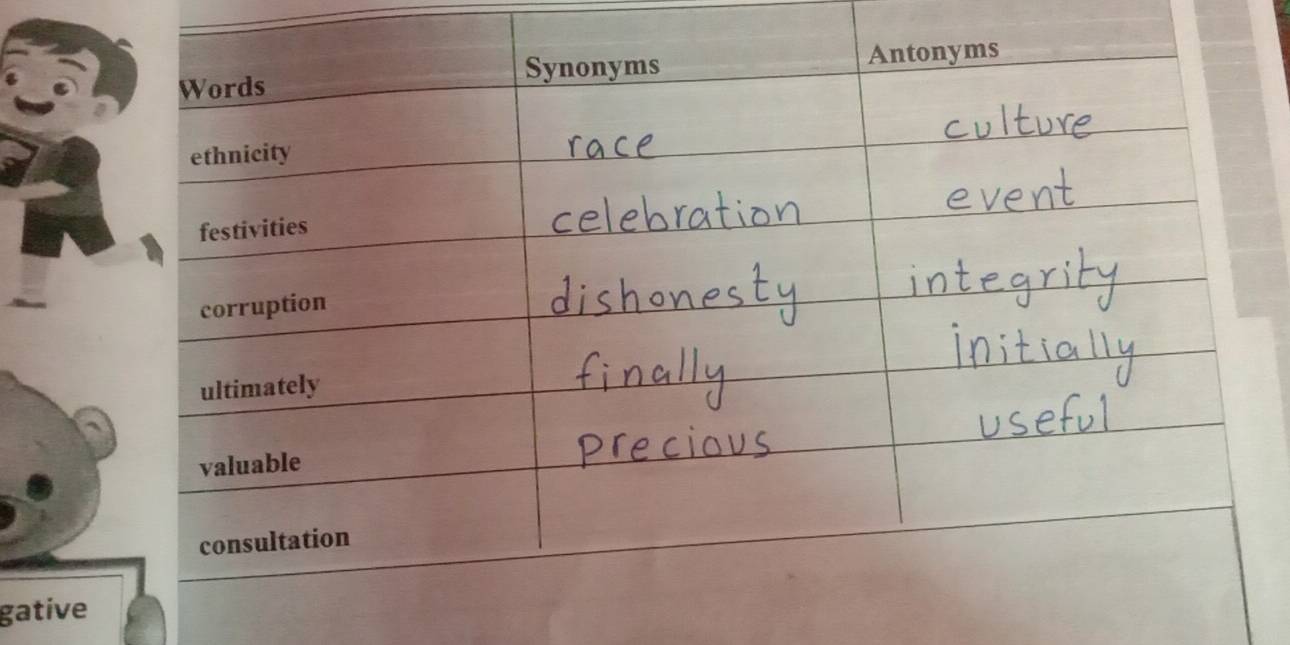 Words Synonyms Antonyms
ethnicity race culture
festivities celebration event
corruption dishonesty integrity
ultimately finally initially
valuable precious useful
consultation
gative